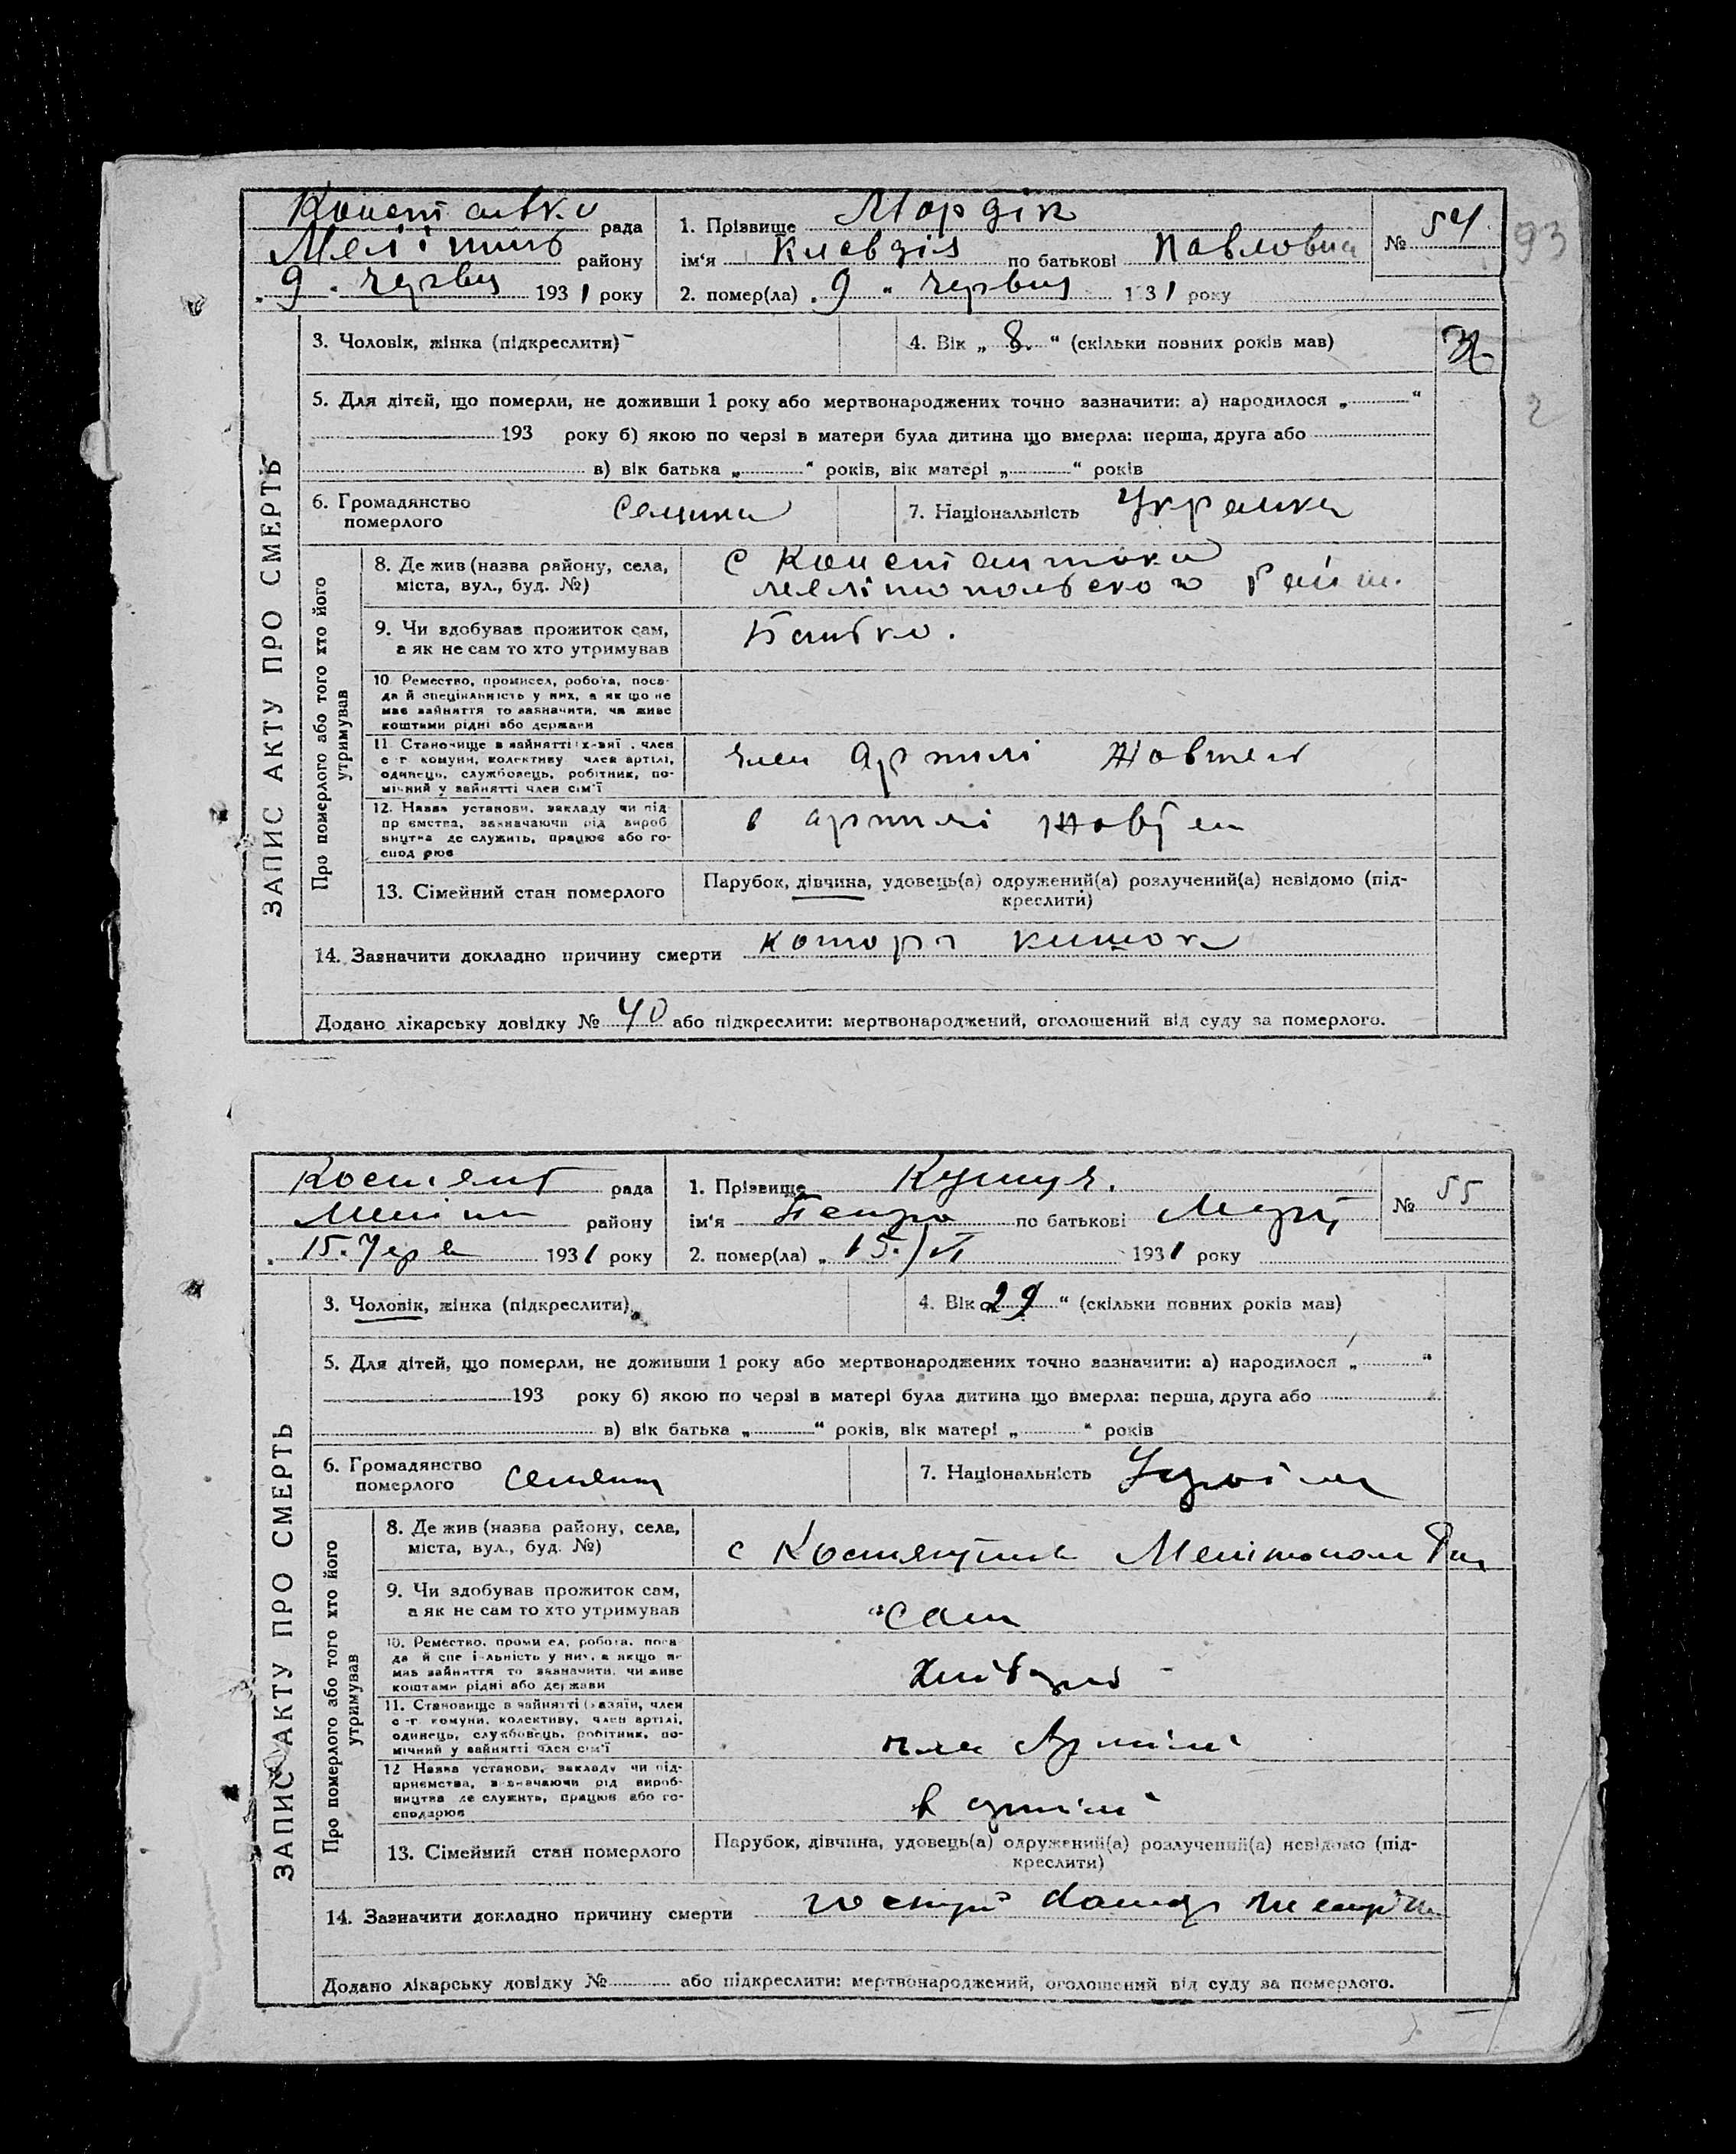 рада
району
9 червня 1931 року
1. Прізвище Мордік
ім'я Клавдія по батькові Павловна
2. помер(ла) „ 9 " червня 1931 року
№ 54
93
ЗАПИС АКТУ ПРО СМЕРТЬ
3. Чоловік, жінка (підкреслити)
4. Вік „ 8 " (скільки повних років мав)
Ж
2
5. Для дітей, що померли, не доживши 1 року або мертвонароджених точно зазначити: а) народилося „ "
193 року б) якою по черзі в матери була дитина що вмерла: перша, друга або
в) вік батька „ " років, вік матері „ " років
6. Громадянство
померлого
7. Національність Украинка
Про померлого або того хто його
утримував
8. Де жив (назва району, села,
міста, вул., буд. №)
с
9. Чи здобував прожиток сам,
а як не сам то хто утримував
Батько.
10. Ремество, промисел, робота, поса-
да й спеціяльність у них, а якщо не
має зайняття то зазначити, чи живе
коштами рідні або держави
11. Становище в зайнятті (хазяї, член
с-г комуни, колективу, член артілі,
одинець, службовець, робітник, по-
мічний у зайнятті член сім'ї
член Артилі Жовтен
12. Назва установи, закладу чи під-
приємства, зазначаючи рід вироб-
ництва де служить, працює або го-
сподарює
в артилі Жовтен
13. Сімейний стан померлого
Парубок, дівчина, удовець(а) одружений(а) розлучений(а) невідомо (під-
креслити)
14. Зазначити докладно причину смерти катора кишок
Додано лікарську довідку № 40 або підкреслити: мертвонароджений, оголошений від суду за померлого.
рада
району
15. Черв 1931 року
1. Прізвище
ім'я Петро по батькові
2. помер(ла) „ 15./VI 1931 року
№ 55
ЗАПИС АКТУ ПРО СМЕРТЬ
3. Чоловік, жінка (підкреслити)
4. Вік 29 " (скільки повних років мав)
5. Для дітей, що померли, не доживши 1 року або мертвонароджених точно зазначити: а) народилося „ "
193 року б) якою по черзі в матері була дитина що вмерла: перша, друга або
в) вік батька „ " років, вік матері „ " років
6. Громадянство
померлого
7. Національність
Про померлого або того хто його
утримував
8. Де жив (назва району, села,
міста, вул., буд. №)
с
9. Чи здобував прожиток сам,
а як не сам то хто утримував
сам
10. Ремество, промисел, робота, поса-
да й спеціяльність у них, а якщо не
має зайняття то зазначити, чи живе
коштами рідні або держави
11. Становище в зайнятті (хазяїн, член
с-г комуни, колективу, член артілі,
одинець, службовець, робітник, по-
мічний у зайнятті член сім'ї
член Артилі
12 Назва установи, закладу чи під-
приємства, зазначаючи рід вироб-
ництва де служить, працює або го-
сподарює
в артилі
13. Сімейний стан померлого
Парубок, дівчина, удовець(а) одружений(а) розлучений(а) невідомо (під-
креслити)
14. Зазначити докладно причину смерти
Додано лікарську довідку № або підкреслити: мертвонароджений, оголошений від суду за померлого.